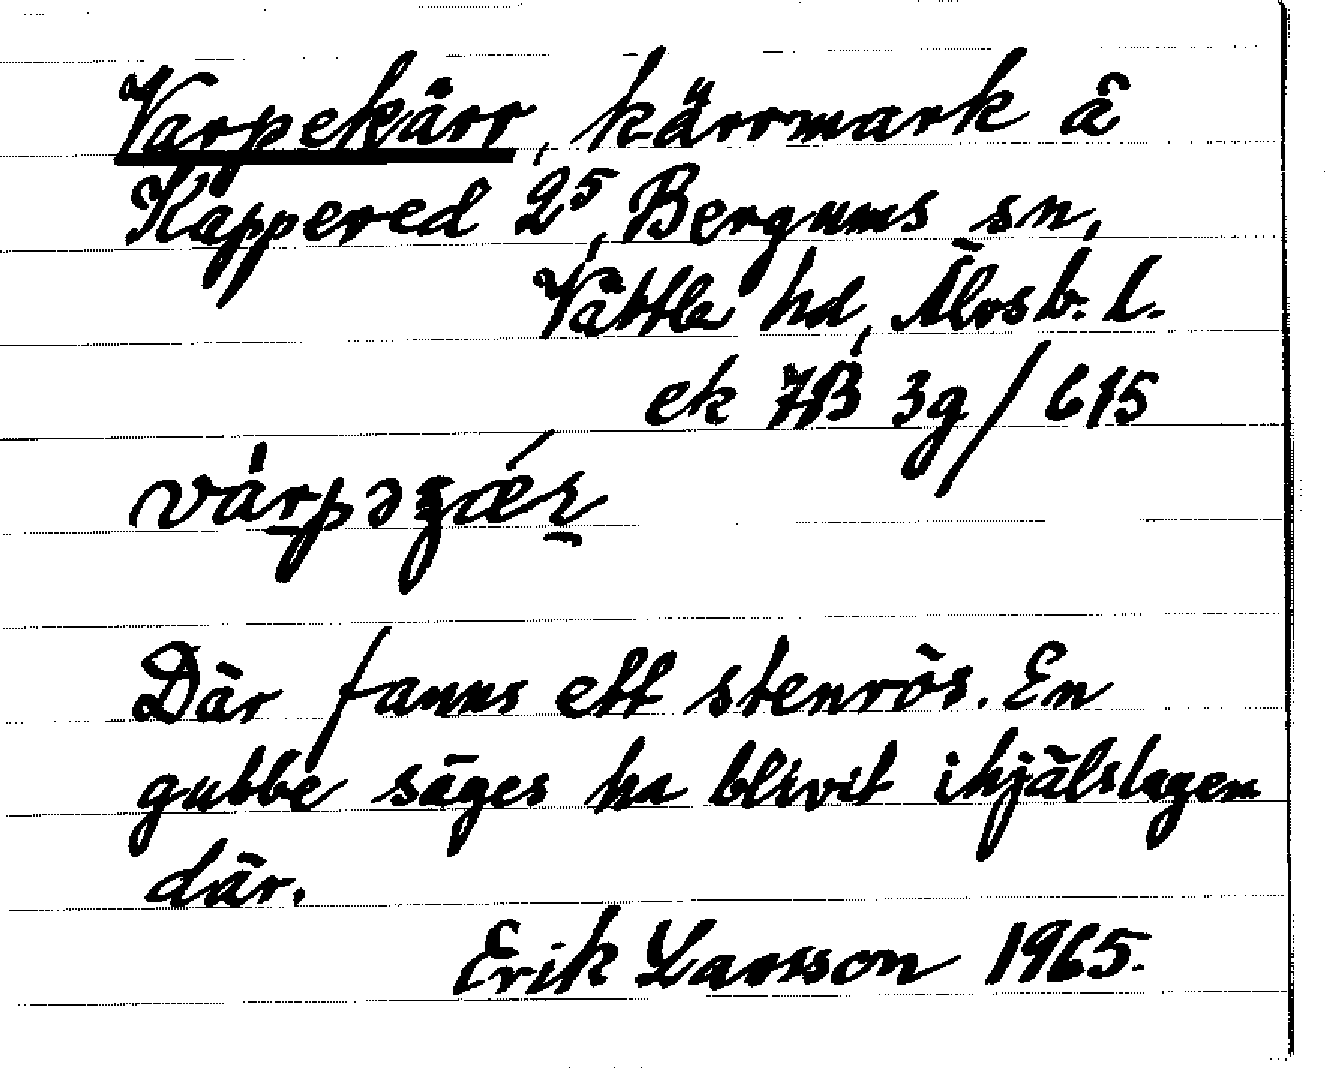 Varpekärr, kärrmark å
Kappered 2⁵, Bergums sn,
Vättle hd, Älvsb. l.
ek 7B 3g/615
vàrpəʒǽr
Där fanns ett stenrös. En
gubbe säges ha blivit ihjälslagen
där.
Erik Larsson 1965.